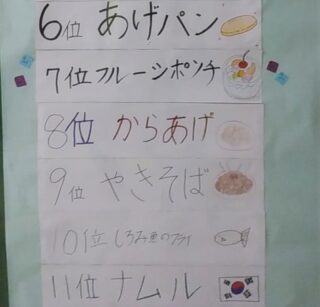 6位 あげパン
7位 フルーツポンチ
8位 からあげ
9位 やきそば
10位 しろみ魚のフライ
11位 ナムル